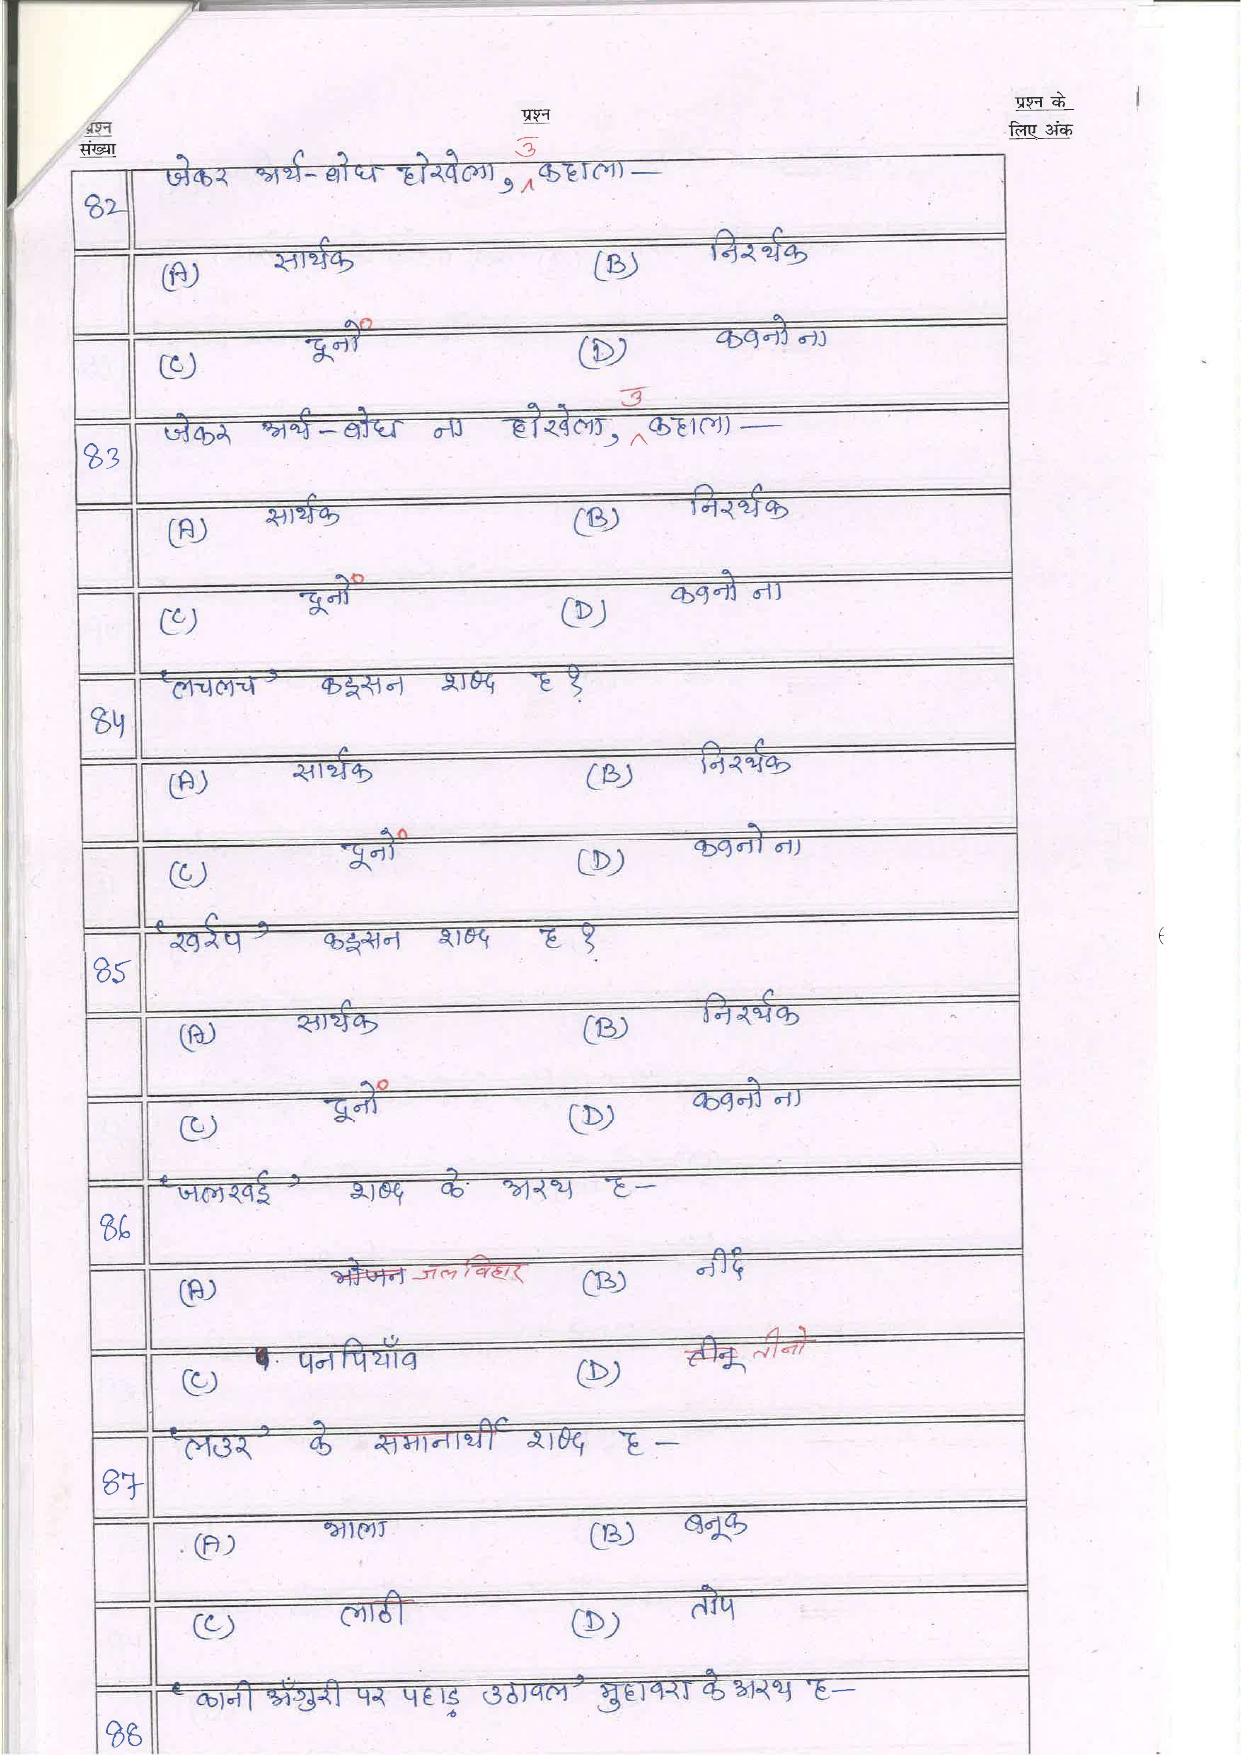 प्रश्न संख्या
प्रश्न
प्रश्न के लिए अंक
82 जेकर अर्थ-बोध होखेला, उ कहाला—
(A) सार्थक (B) निरर्थक
(C) दूनों (D) कवनो ना
83 जेकर अर्थ-बोध ना होखेला, उ कहाला—
(A) सार्थक (B) निरर्थक
(C) दूनों (D) कवनो ना
84 'लचलच' कइसन शब्द ह ?
(A) सार्थक (B) निरर्थक
(C) दूनों (D) कवनो ना
85 'खर्रप' कइसन शब्द ह ?
(A) सार्थक (B) निरर्थक
(C) दूनों (D) कवनो ना
86 'जलखई' शब्द के अरथ ह—
(A) भोजन जलविहार (B) नींद
(C) पनपियाँव (D) तीनू तीनो
87 'लउर' के समानार्थी शब्द ह—
(A) भाला (B) बनूक
(C) लाठी (D) तोप
88 'कानी अँगुरी पर पहाड़ उठावल' मुहावरा के अरथ ह—